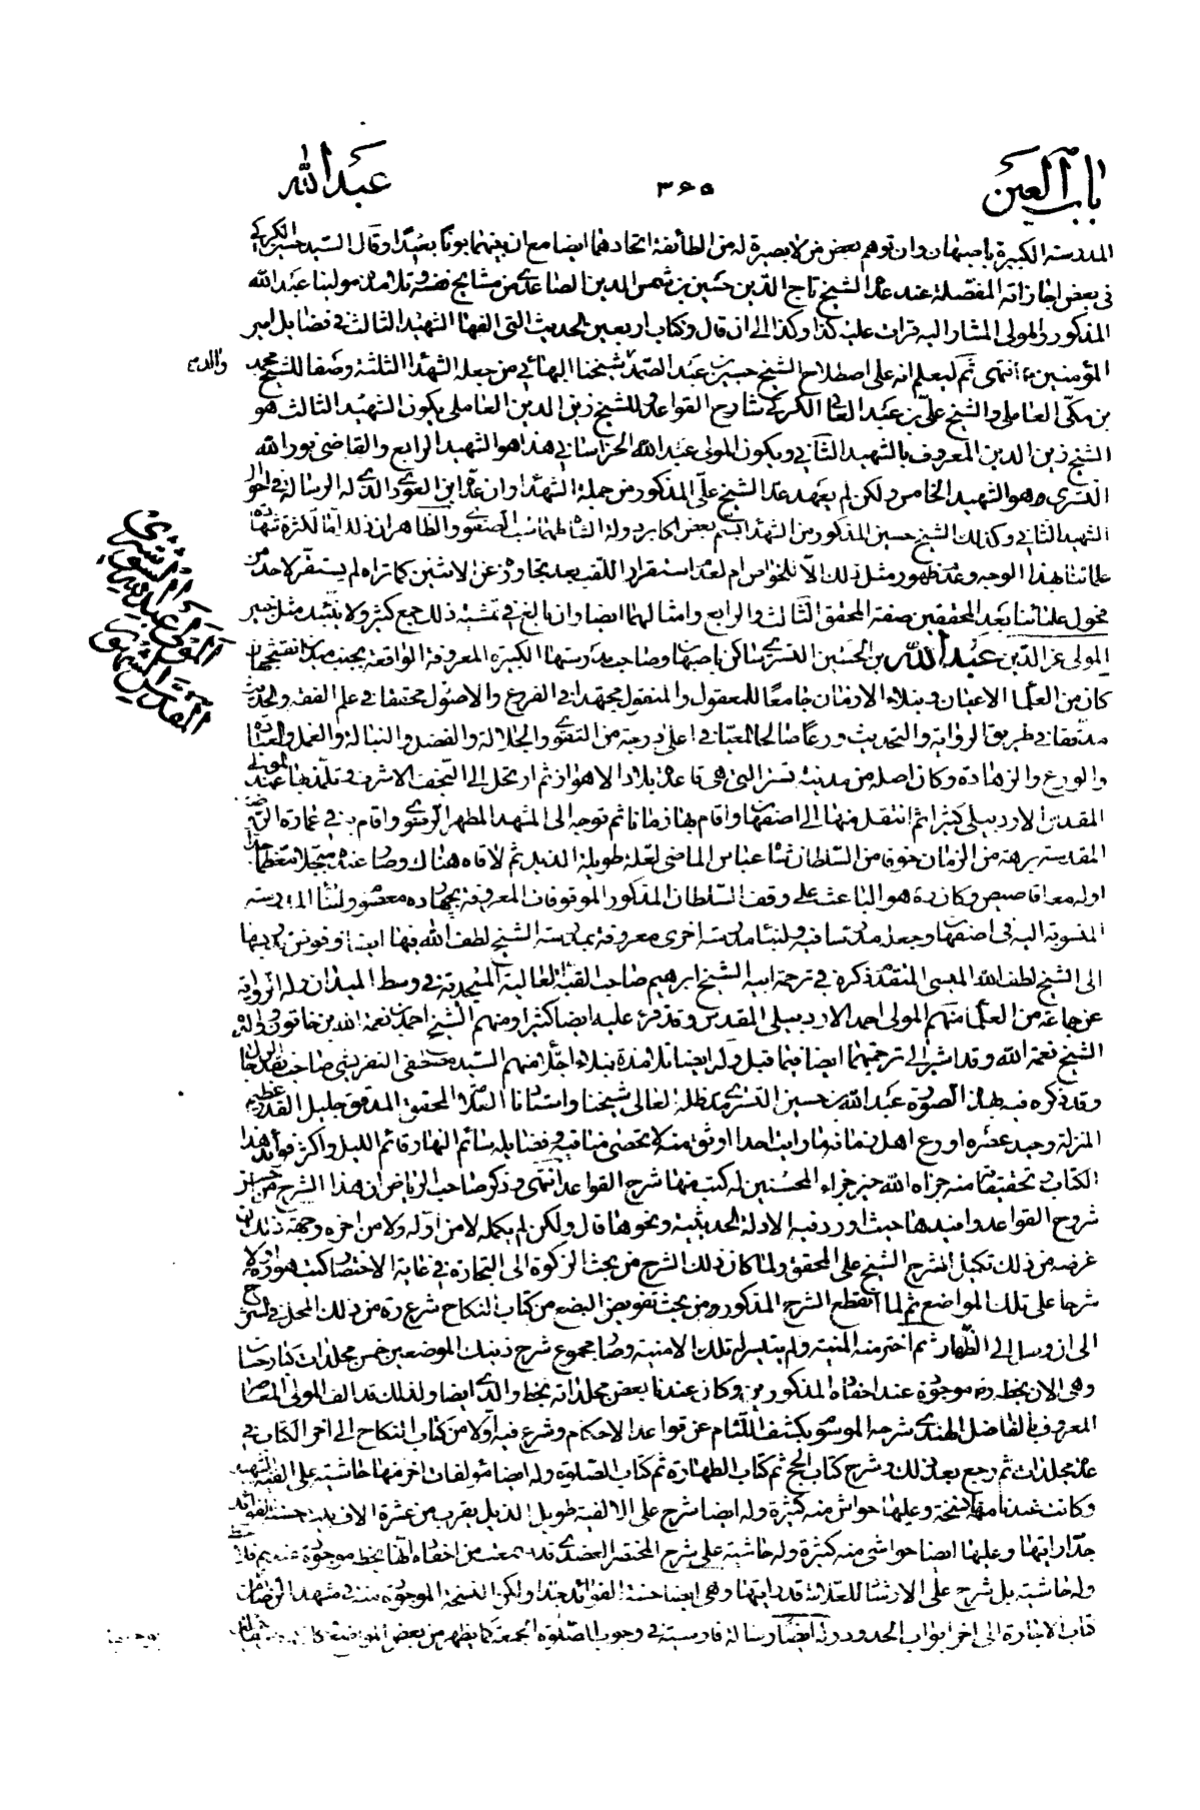 باب العين
٣٦٥
عبد الله
المدرسة الكبيرة باصبهان وان توهم بعض من لا بصيرة له من الطائفة اتحادهما ايضا مع ان بينهما بونا بعيدا وقال السيد حسين الكركي
في بعض اجازاته المفصلة عند عد الشيخ تاج الدين حسين بن شمس الدين الصاعدي من مشايخ نفسه وتلامذة مولينا عبد الله
المذكور والمولى المشار اليه قرات عليه كذا وكذا الى ان قال وكتاب اربعين الحديث التي الفها الشهيد الثالث في فضايل امير
المؤمنين انتهى ثم ليعلم انه على اصطلاح الشيخ حسين بن عبد الصمد شيخنا البهائي من جعله الشهدا الثلثة وصفا للشيخ محمد
والد
بن مكى العاملي والشيخ على بن عبد العالي الكركي شارح القواعد والشيخ زين الدين العاملي يكون الشهيد الثالث هو
الشيخ زين الدين المعروف بالشهيد الثاني ويكون المولى عبد الله الخراساني هذا هو الشهيد الرابع والقاضي نور الله
التستري هو الشهيد الخامس ولكن لم يعهد عد الشيخ على المذكور من جملة الشهدا وان عده ابن العودي الذي له الرسالة في احوال
الشهيد الثاني وكذلك الشيخ حسين المذكور من الشهدا باسم بعض اكابر دولة الشاه طهماسب الصفوي والظاهر ان ذلك اما لكثرة شهداء
علمائنا بهذا الوجه وعدم ظهور مثل ذلك الا للخواص ام لعدم استقرار اللقب بعد تجاوزه عن الاثنين كما تراه لم يستقر لاحد من
فحول علمائنا بعد المحققين صفة المحقق الثالث والرابع وامثالهما ايضا وان بالغ في تمشية ذلك جمع كثير ولا ينبئك مثل خبير
المولى عز الدين عبد الله بن الحسين التستري ساكن اصبهان وصاحب مدرستها الكبيرة المعروفة الواقعة بجنب ميدان نقش جهان
المولى عبد الله التستري
المقدس المشهور
كان من العلماء الاعيان ونبلاء الازمان جامعا للمعقول والمنقول مجتهدا في الفروع والاصول محققا في علم الفقه والحديث
مدققا في طريق الرواية والتحديث ورعا صالحا لمعانيا في اعلى درجة من التقوى والجلالة والفضل والنبالة والعمل والعبادة
والورع والزهادة وكان اصله من مدينة تستر التي هي قاعدة بلاد الاهواز ثم ارتحل الى النجف الاشرف وتلمذ بها عند المولى
المقدس الاردبيلي كثيرا ثم انتقل منها الى اصفهان واقام بها زمانا ثم توجه الى المشهد المطهر الرضوي واقام به في عمارة الروضة
المقدسة برهة من الزمان خوفا من السلطان شاه عباس الماضي لعلة طويلة الذيل ثم لاقاه هناك وصار عنده مبجلا معظما جدا
وله معه اقاصيص وكان ره هو الباعث على وقف السلطان المذكور الموقوفات المعروفة بچهارده معصوم ولبناء المدرسة
المنسوبة اليه في اصفهان وجعله مدرسا فيه ولبناء مدرسة اخرى معروفة بمدرسة الشيخ لطف الله فيها ايضا وفوض تدريسها
الى الشيخ لطف الله الميسي المتقدم ذكره في ترجمة ابيه الشيخ ابرهيم صاحب القبة العالية المسجدية في وسط الميدان وله الرواية
عن جماعة من العلماء منهم المولى احمد الاردبيلي المقدس وقد قرء عليه ايضا كثيرا ومنهم الشيخ احمد بن نعمة الله بن خاتون ووالده
الشيخ نعمة الله وقد اشير الى ترجمتهما ايضا فيما قبل وله ايضا تلامذة نبلاء اجلاء منهم السيد مصطفى التفرشي صاحب نقد الرجال
وقد ذكره فيه بهذه الصورة عبد الله بن حسين التستري مد ظله العالى شيخنا واستادنا العلامة المحقق المدقق جليل القدر عظيم
المنزلة وحيد عصره اورع اهل زمانه ما رايت احدا اوثق منه لا تحصى مناقبه وفضايله صائم النهار قائم الليل واكثر فوائد هذا
الكتاب وتحقيقاته منه جزاه الله خير جزاء المحسنين له كتب منها شرح القواعد انتهى وذكر صاحب الرياض ان هذا الشرح من احسن
شروح القواعد وافيدها حيث اورد فيه الادلة الحديثية ونحوها قال ولكن لم يكمله لا من اوله ولا من اخره وجهة ذلك ان
غرضه من ذلك تكميل شرح الشيخ على المحقق ولما كان ذلك الشرح من بحث الزكوة الى التجارة في غاية الاختصار كتب هو ره اولا
شرحا على تلك المواضع ثم لما انقطع الشرح المذكور ومن بحث تفويض البضع من كتاب النكاح شرع ره من ذلك المحل في الشرح
الى ان وصل الى الظهار ثم اخترمته المنية ولم يتيسر له تلك الامنية وصار مجموع شرح ذينك الموضعين خمس مجلدات كبار حسان
وهي الان بخطه ره موجودة عند احفاده المذكورين وكان عندنا بعض مجلداته بخط والدي ايضا ولذلك قد الف المولى المعاصر
المعروف بالفاضل الهندي شرحه الموسوم بكشف اللثام عن قواعد الاحكام وشرع فيه اولا من كتاب النكاح الى اخر الكتاب في
عدة مجلدات ثم رجع بعد ذلك وشرح كتاب الحج ثم كتاب الطهارة ثم كتاب الصلوة وله ايضا مؤلفات اخر منها حاشية على الفية الشهيد
وكانت عندنا منها نسخة وعليها حواش منه كثيرة وله ايضا شرح على الالفية طويل الذيل يقرب من عشرة الاف بيت حسنة الفوائد
جدا رايتها وعليها ايضا حواشي منه كثيرة وله حاشية على شرح المختصر العضدي قد سمعت من احفاده انها بخطه موجودة عندهم
وله حاشية بل شرح على الارشاد للعلامة قد رايتها وهي ايضا حسنة الفوائد جدا ولكن النسخة الموجودة منه في مشهد الرضا من
كتاب الاجارة الى اخر ابواب الحدود وله ايضا رسالة فارسية في وجوب الصلوة الجمعة كما يظهر من بعض المواضع